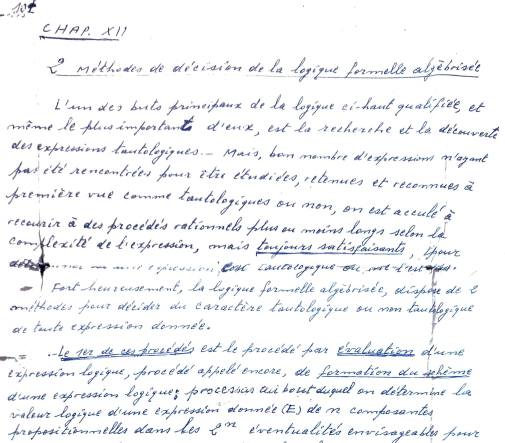 CHAP. XII
2 Méthodes de décision de la logique formelle algébrisée
L'un des buts principaux de la logique ci-haut qualifiée, et
même le plus important d'eux, est la recherche et la découverte
des expressions tautologiques. - Mais, bon nombre d'expressions n'ayant
pas été rencontrées pour être étudiées, retenues et reconnues à
première vue comme tautologiques ou non, on est acculé à
recourir à des procédés rationnels plus ou moins longs selon la
complexité de l'expression, mais toujours satisfaisants, pour
une expression est tautologique ou ne l'est pas.
- Fort heureusement, la logique formelle algébrisée, dispose de 2
méthodes pour décider du caractère tautologique ou non tautologique
de toute expression donnée.
- Le 1er de ces procédés est le procédé par évaluation d'une
expression logique, procédé appelé encore, de formation du schème
d'une expression logique; processus au bout duquel on détermine la
valeur logique d'une expression donnée (E) de n composantes
propositionnelles dans les 2ⁿ éventualités envisageables pour